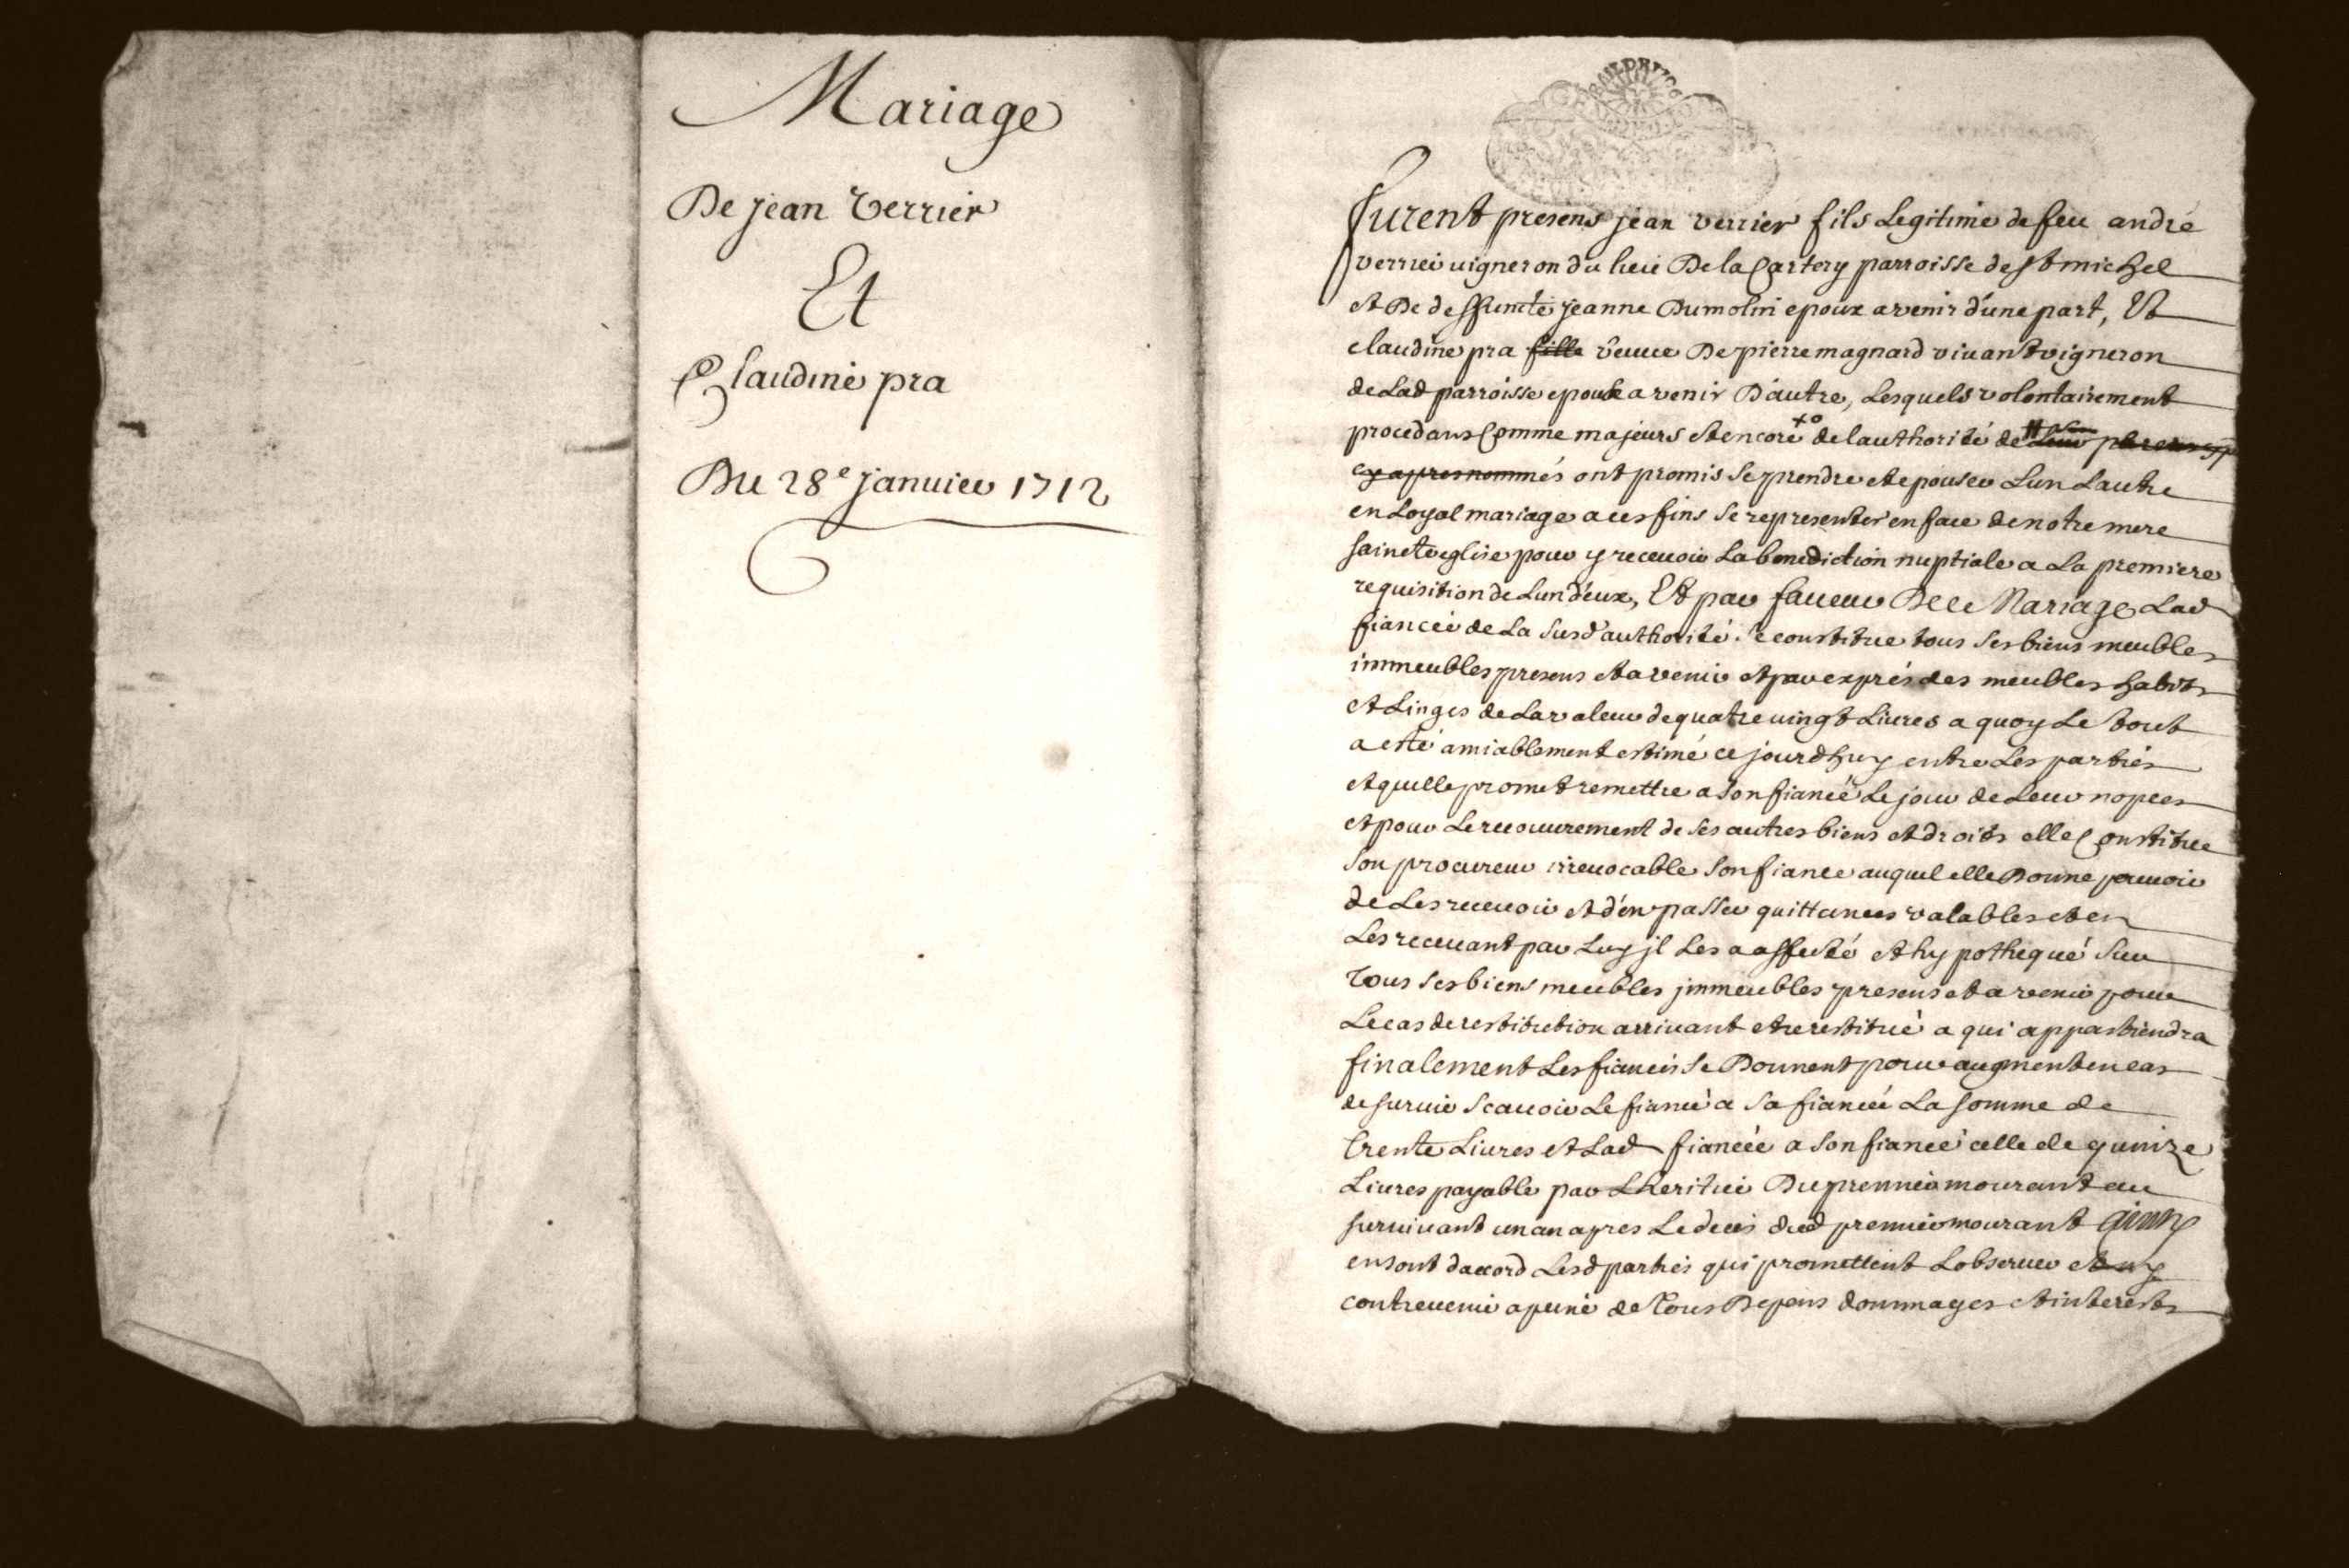 Mariage
De jean Verrier
Et
Claudine pra
Du 28e januier 1712
furent presens jean verrier fils Legitime de feu andré
verrier uigneron du lieu De la Cartery parroisse de St michel
et De deffuncte jeanne Dumolin epoux avenir d'une part, Et
claudine pra fille veuue De pierre magnard viuant vigneron
de Lad parroisse epouse avenir D'autre, Lesquels volontairement
procedans Comme majeurs et encore de lauthorité de
cy apres nommés ont promis Se prendre et epouser Lun Lautre
en Loyal mariage a ces fins Se representer en face de notre mere
saincte eglise pour y receuoir La benediction nuptiale a La premiere
requisition de Lun d'eux, Et par faueur De ce Mariage Lad
fiancée de La susd authorité Se constitue tous Ses biens meubles
immeubles presens et avenir et par exprés des meubles habits
et Linges de La valeur de quatre uingt Liures a quoy Le tout
a esté amiablement estimé ce jourdhuy entre Les parties
et quelle promet remettre a Son fiancé Le jour de Leur nopces
et pour Le recouurement de Ses autres biens et droits elle Constitue
Son procureur irreuocable Son fiancé auquel elle Donne pouuoir
de Les receuoir et d'en passer quittances valables et en
Les receuant par Luy jl Les a affecté et hypothequé Sur
Tous Ses biens meubles jmmeubles presens et avenir pour
Le cas de restitution arriuant etre restitué a qui appartiendra
finalement Les fiancés Se Donnent pour augment en cas
de suruie Scauoir Le fiancé a Sa fiancée La somme de
trente Liures et Lad fiancée a Son fiancé celle de quinze
Liures payable par Lheritier Du premier mourant au
suruiuant un an apres Le deces dud premier mourant ainsy
en sont daccord Lesd parties qui promettent Lobseruer et ny
contreuenir a peine de tous Depens dommages et interests